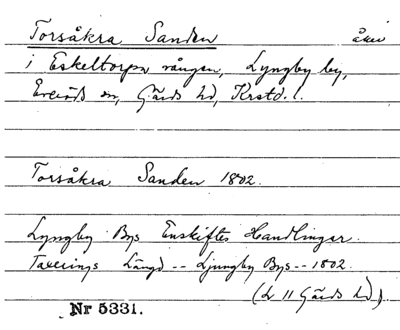 Torsåkra Sanden åker
i Eskeltorpa vången, Lyngby by,
Everöds sn, Gärds hd, Krstd. l.
Torsåkra Sanden 1802.
Lyngby Bys Enskiftes Handlingar.
Taxerings Längd -- Ljungby Bys -- 1802.
(L 11 Gärds hd).
Nr 5331.